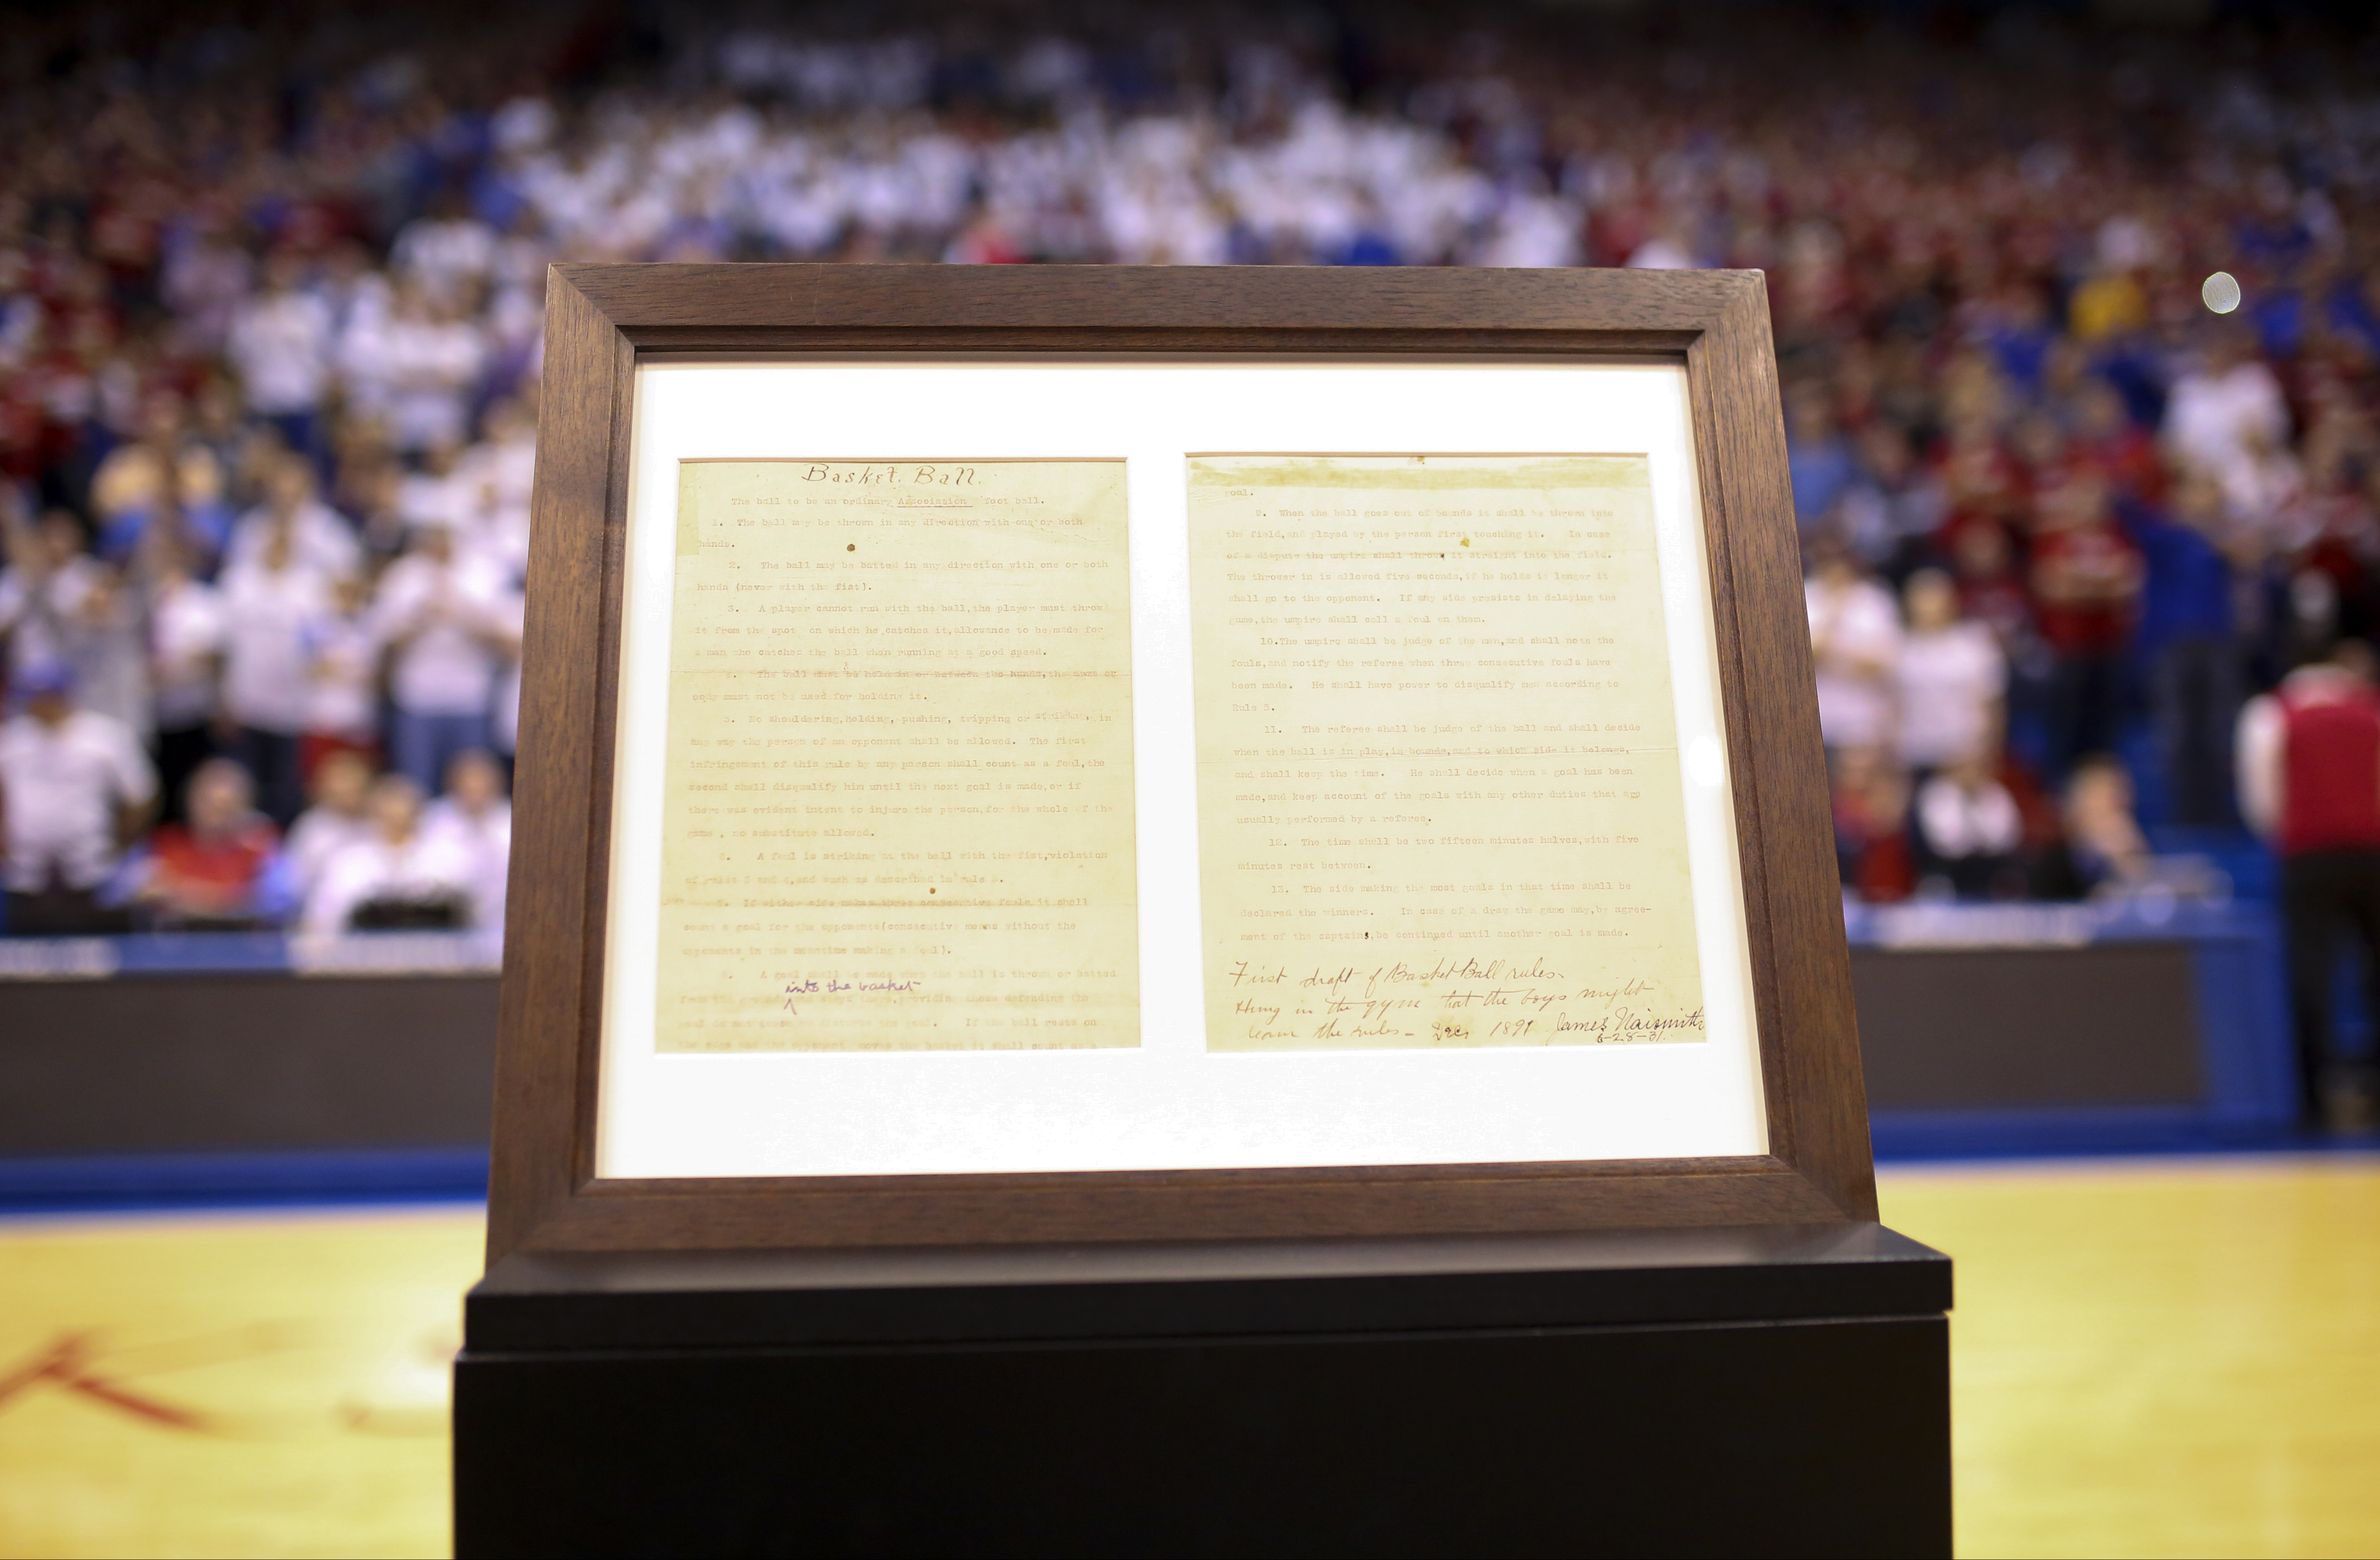 Basket Ball.
The ball to be an ordinary Association foot ball.
1. The ball may be thrown in any direction with one or both
hands.
2. The ball may be batted in any direction with one or both
hands (never with the fist).
3. A player cannot run with the ball,the player must throw
it from the spot on which he catches it,allowance to be made for
a man who catches the ball when running at a good speed.
4. The ball must be held in or between the hands,the arms or
body must not be used for holding it.
5. No shouldering,holding, pushing, tripping or striking, in
any way the person of an opponent shall be allowed. The first
infringement of this rule by any person shall count as a foul,the
second shall disqualify him until the next goal is made,or if
there was evident intent to injure the person,for the whole of the
game , no substitute allowed.
6. A foul is striking at the ball with the fist,violation
of rules 3 and 4,and such as described in rule 5.
7. If either side makes three consecutive fouls it shall
count a goal for the opponents(consecutive means without the
opponents in the meantime making a foul).
8. A goal shall be made when the ball is thrown or batted
into the basket
from the grounds and stays there,providing those defending the
goal do not touch or disturb the goal. If the ball rests on
the edge and the opponent moves the basket it shall count as a
goal.
9. When the ball goes out of bounds it shall be thrown into
the field,and played by the person first touching it. In case
of a dispute the umpire shall throw it straight into the field.
The thrower in is allowed five seconds,if he holds it longer it
shall go to the opponent. If any side presists in delaying the
game,the umpire shall call a foul on them.
10.The umpire shall be judge of the men,and shall note the
fouls,and notify the referee when three consecutive fouls have
been made. He shall have power to disqualify men according to
Rule 5.
11. The referee shall be judge of the ball and shall decide
when the ball is in play,in bounds,and to which side it belongs,
and shall keep the time. He shall decide when a goal has been
made,and keep account of the goals with any other duties that are
usually performed by a referee.
12. The time shall be two fifteen minutes halves,with five
minutes rest between.
13. The side making the most goals in that time shall be
declared the winners. In case of a draw the game may,by agree-
ment of the captains,be continued until another goal is made.
First draft of Basket Ball rules.
Hung in the gym that the boys might
learn the rules - Dec. 1891 James Naismith
6-28-31.